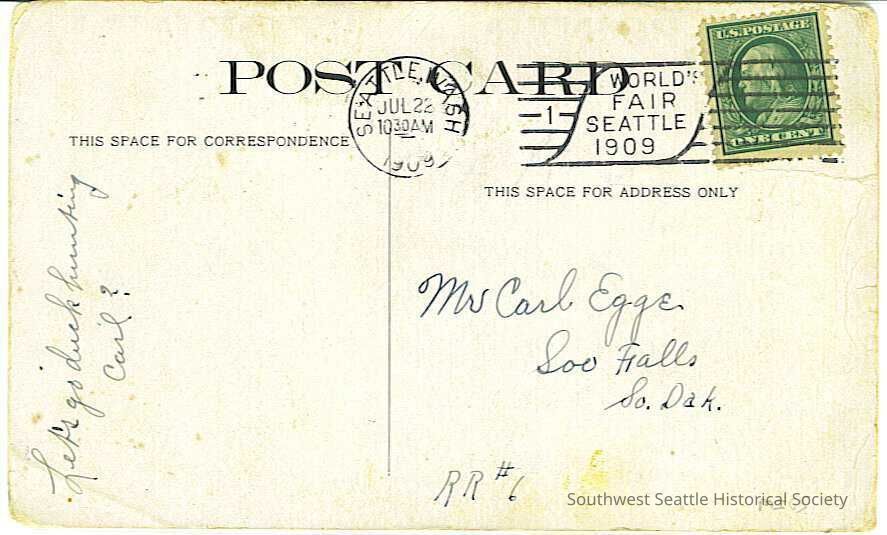 POST CARD
SEATTLE, WASH
JUL 22
1030AM
1909
1
WORLD'S
FAIR
SEATTLE
1909
U.S. POSTAGE
ONE CENT
THIS SPACE FOR CORRESPONDENCE
THIS SPACE FOR ADDRESS ONLY
Let's go duck hunting
Carl?
Mr Carl Egge
Soo Falls
So. Dak.
RR #6
Southwest Seattle Historical Society